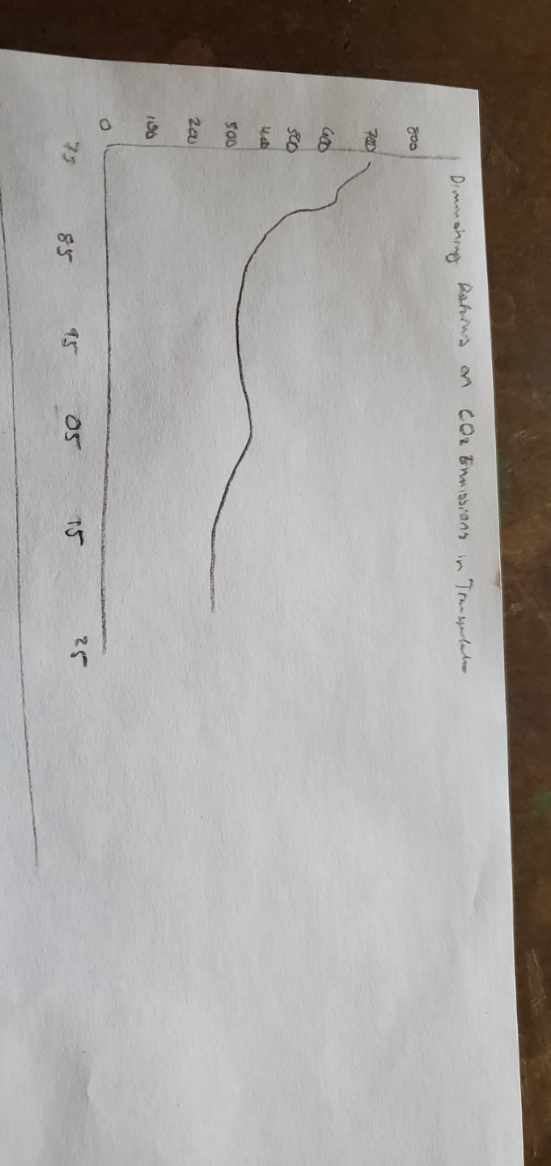 Diminishing Returns on CO2 Emissions in
800
700
600
500
400
300
200
100
0
75 85 95 05 15 25